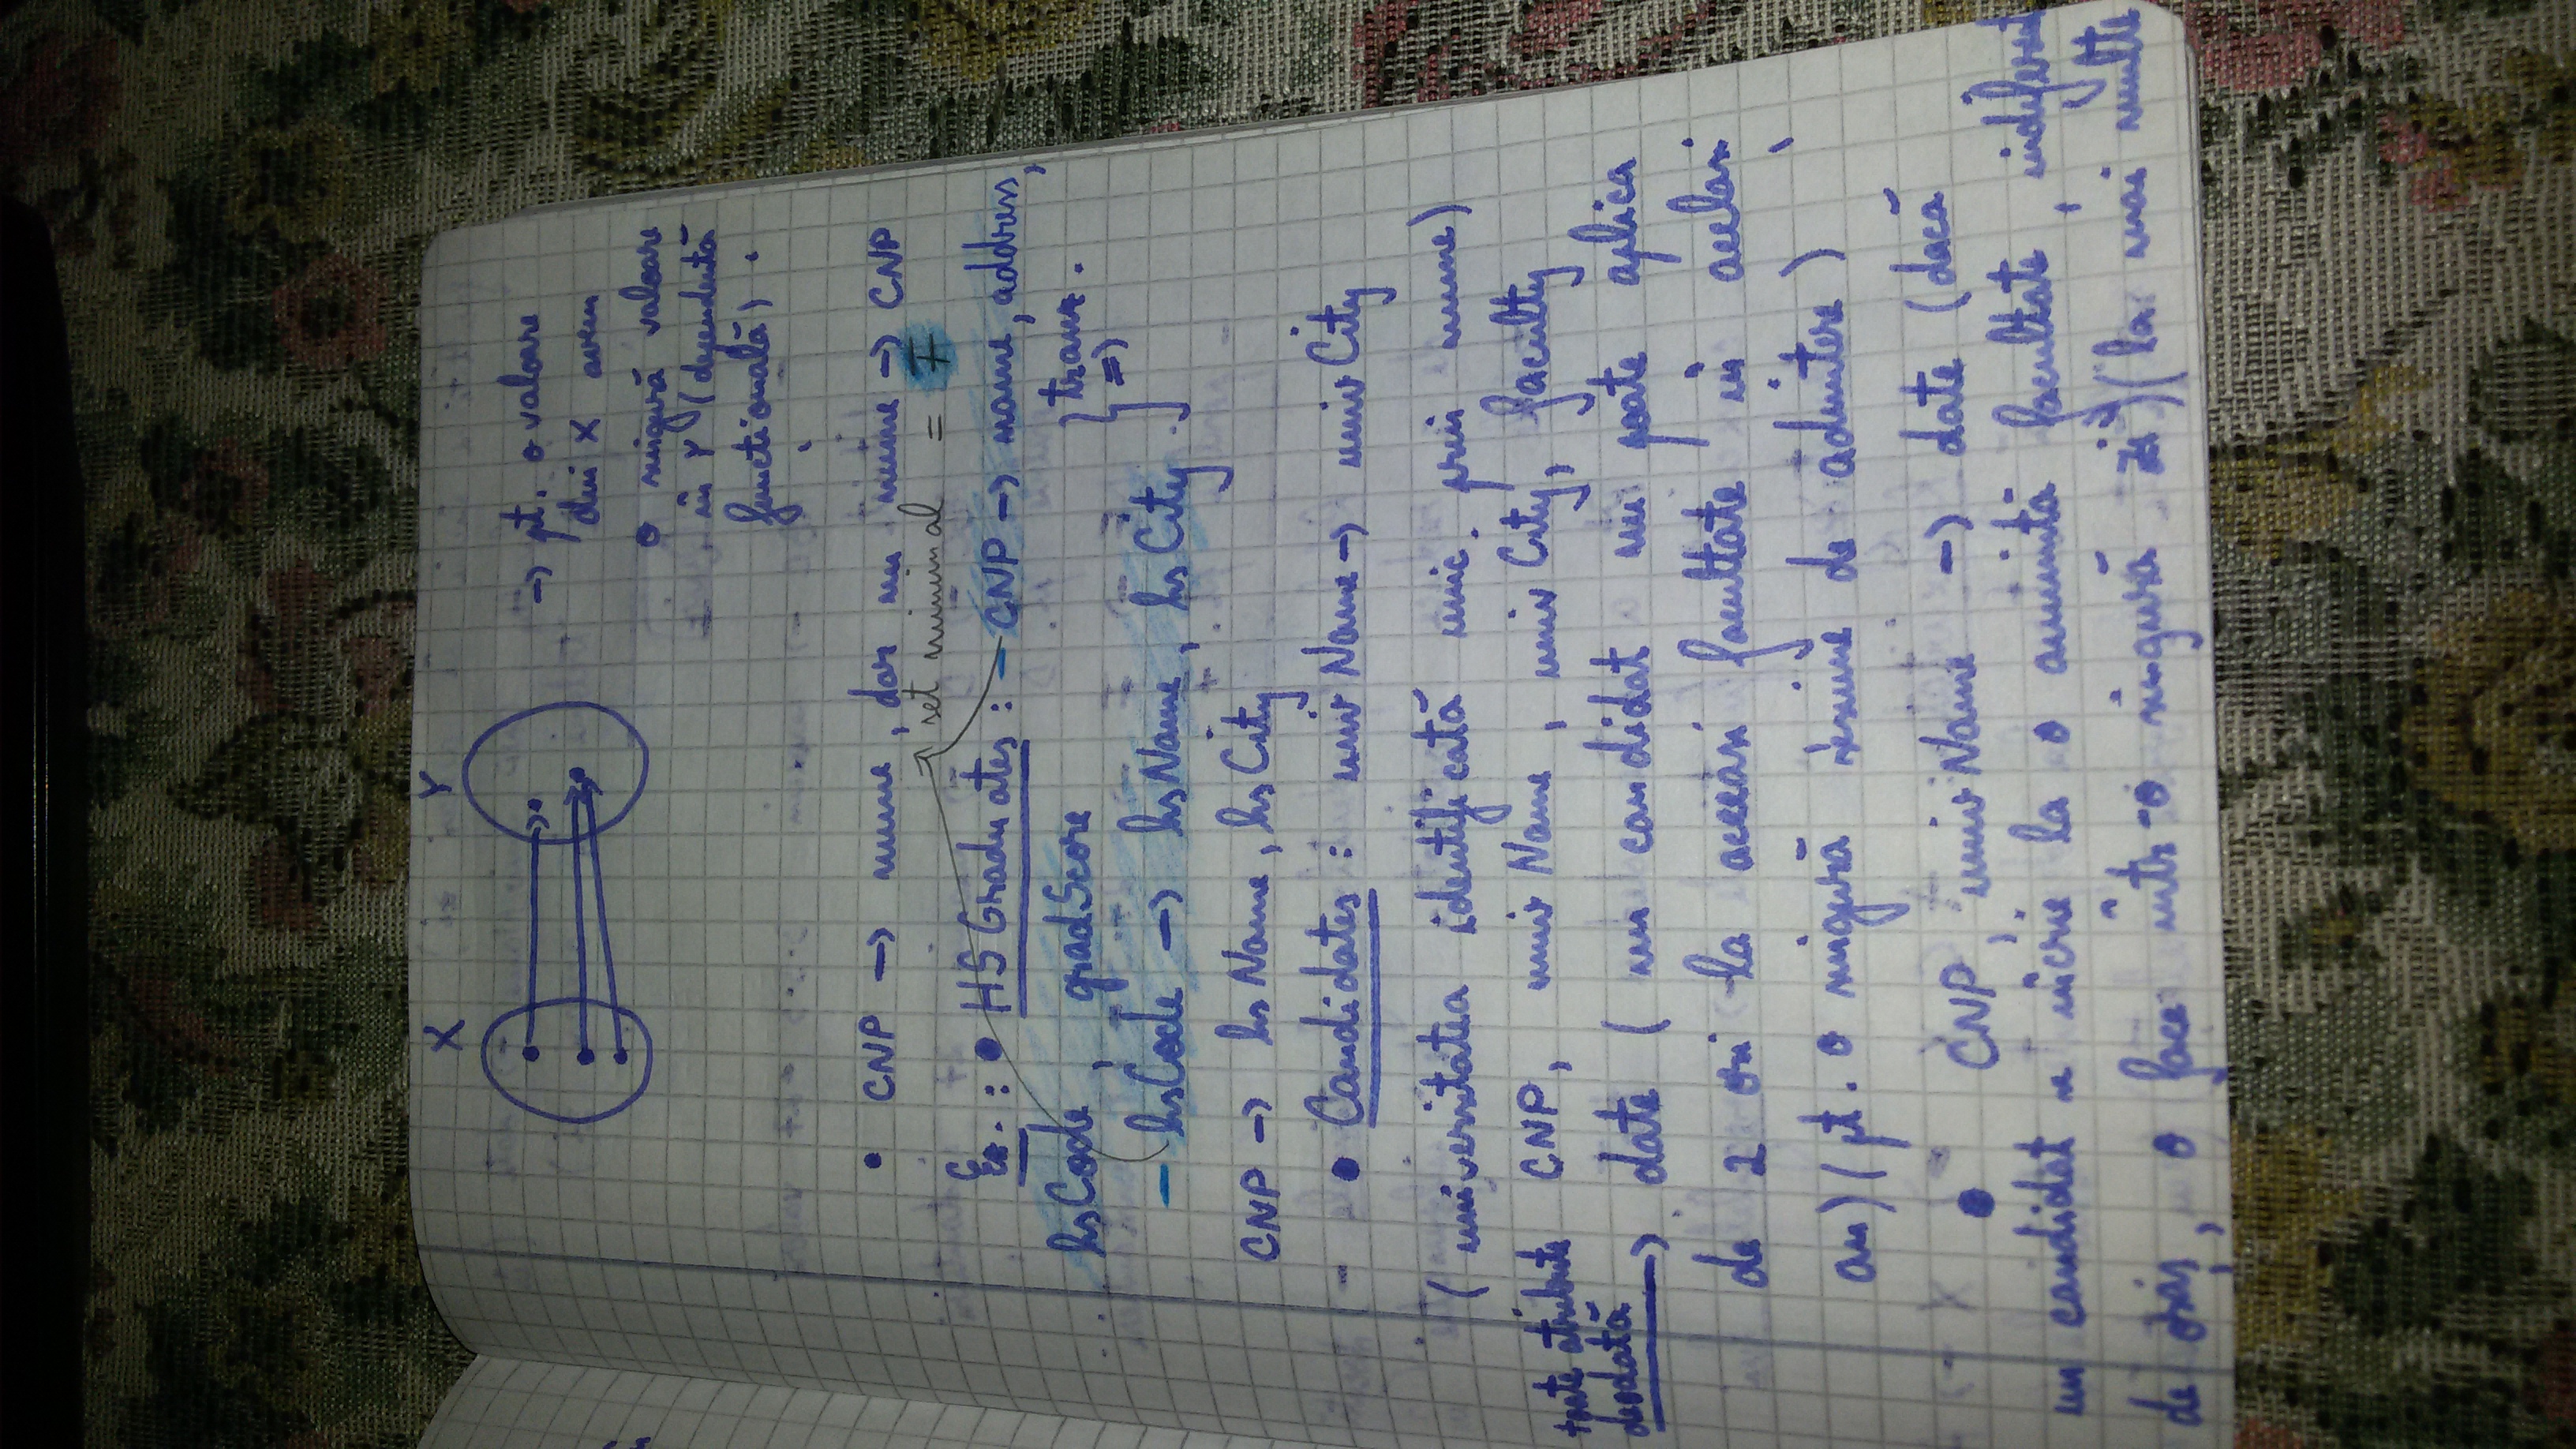 X Y
→ pt. o valoare
din X avem
o singură valoare
în Y (dependentă
functională)
• CNP → nume, dar nu nume → CNP
set minimal = F
Ex.: • HSGraduates: - CNP → name, address,
hsCode, gradScore } tranz. =>
- hsCode → hsName, hsCity
CNP → hsName, hsCity
• Candidates: univName → univCity
(universitatea identificată unic prin nume)
toate atribute CNP, univName, univCity, faculty
deodată → date (un candidat nu poate aplica
de 2 ori la aceeasi facultate în acelasi
an) (pt. o singură sesiune de admitere)
• CNP, univName → date (dacă
un candidat se încrie la o anumită facultate, indiferent
de oraș, o face într-o singură zi) (la mai multe